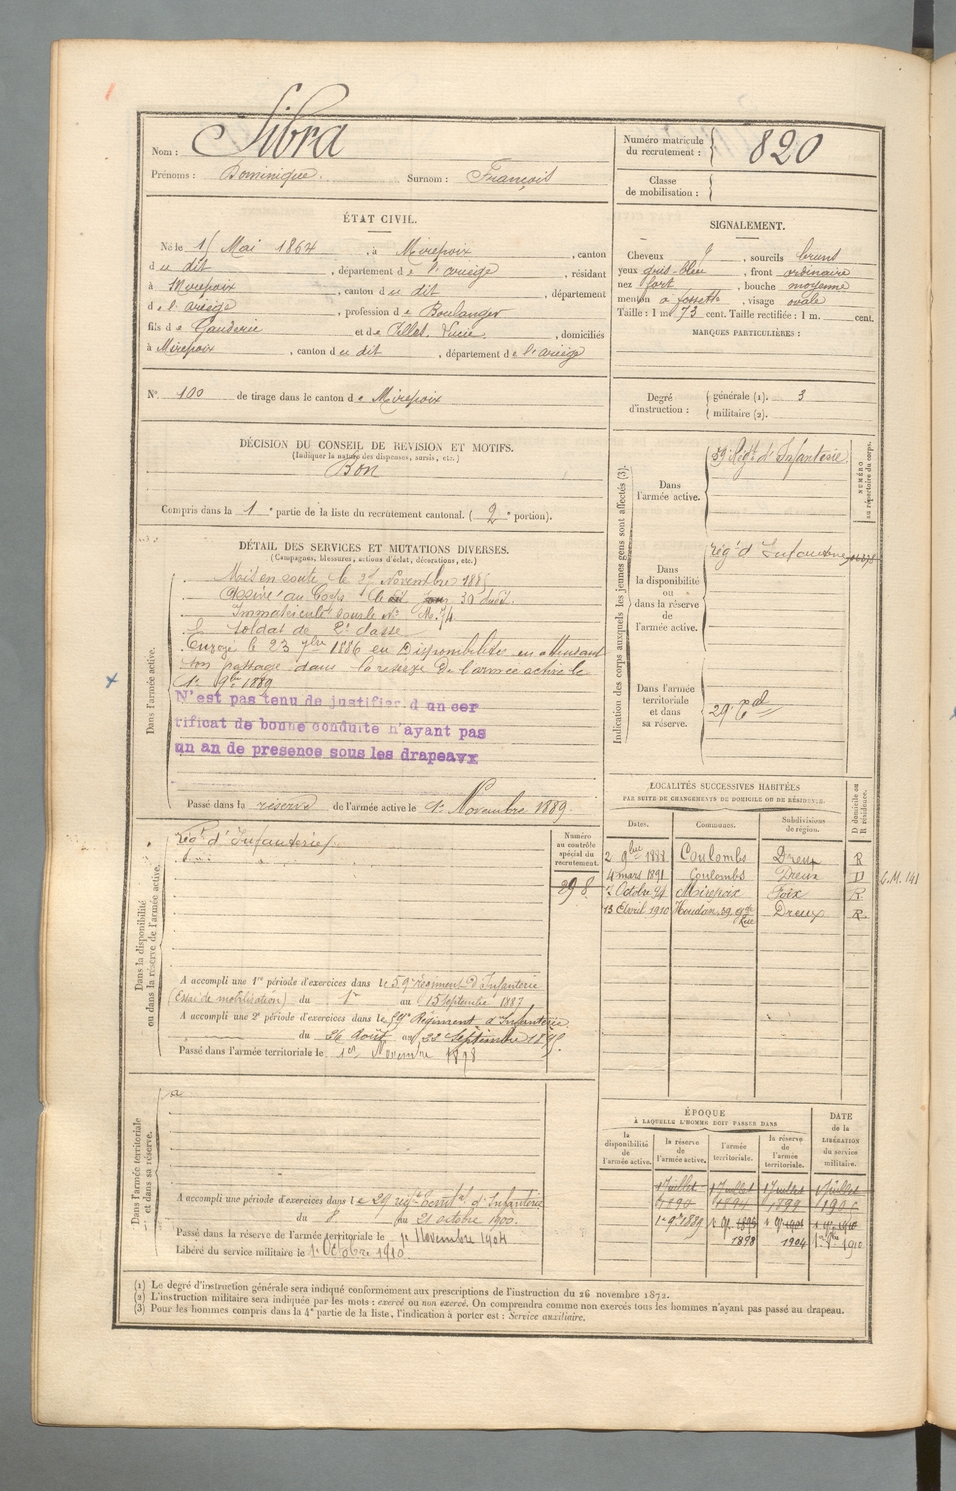 Nom : Sibra
Prénoms : Dominique. Surnom : François
Numéro matricule du recrutement : 820
Classe de mobilisation :
ÉTAT CIVIL.
Né le 15 Mai 1864, à Mirepoix, canton
du dit, département de l'ariège, résidant
à Mirepoix, canton du dit, département
de l'ariège, profession de Boulanger
fils de Gauderic et de Pillet, Lucie, domiciliés
à Mirepoix, canton du dit, département de l'ariège
SIGNALEMENT.
Cheveux, sourcils bruns
yeux gris-bleu, front ordinaire
nez fort, bouche moyenne
menton a fossette, visage ovale
Taille : 1 m 73 cent. Taille rectifiée : 1 m. cent.
MARQUES PARTICULIÈRES :
N° 100 de tirage dans le canton de Mirepoix
Degré d'instruction : générale (1). 3
militaire (2).
DÉCISION DU CONSEIL DE REVISION ET MOTIFS.
(Indiquer la nature des dispenses, sursis, etc.)
Bon
Compris dans la 1e partie de la liste du recrutement cantonal. (2e portion).
Indication des corps auxquels les jeunes gens sont affectés (3).
Dans l'armée active. 59e Régt d'Infanterie
NUMÉRO au répertoire du corps.
Dans la disponibilité ou dans la réserve de l'armée active. rég. d'Infanterie
Dans l'armée territoriale et dans sa réserve. 29e Td
DÉTAIL DES SERVICES ET MUTATIONS DIVERSES.
(Campagnes, blessures, actions d'éclat, décorations, etc.)
Dans l'armée active.
Mis en route le 27 Novembre 1885
Arrivé au Corps le dit jour 30 dudit.
Immatriculé sous le N°
soldat de 2e classe
le 23 7bre 1886 en Disponibilité en attendant
son passage dans la réserve de l'armée active le
1er 9bre 1889
N'est pas tenu de justifier d un cer
tificat de bonne conduite n'ayant pas
un an de presence sous les drapeaux
Passé dans la réserve de l'armée active le 1er Novembre 1889.
LOCALITÉS SUCCESSIVES HABITÉES
PAR SUITE DE CHANGEMENTS DE DOMICILE OU DE RÉSIDENCE.
Dates. Communes. Subdivisions de région. D domicile ou R résidence.
2 9bre 1888 Coulombs Dreux R
4 mars 1891 Coulombs Dreux D
Octobre 94 Mirepoix Foix R
13 Avril 1910 Houdan, 39 gde Rue Dreux R
Dans la disponibilité ou dans la réserve de l'armée active.
régt d'Infanterie
Numéro au contrôle spécial du recrutement.
298
A accompli une 1re période d'exercices dans le 59e régiment d'Infanterie
(Essai de mobilisation) du 1er au 15 Septembre 1887
A accompli une 2e période d'exercices dans le 59e Régiment d'Infanterie
du 26 Août au 22 Septembre 1895.
Passé dans l'armée territoriale le 1er Novembre 1898
Dans l'armée territoriale et dans sa réserve.
A accompli une période d'exercices dans le 29 régt territ. d'Infanterie
du 8 au 21 octobre 1900.
Passé dans la réserve de l'armée territoriale le 1er Novembre 1904
Libéré du service militaire le 1er Octobre 1910.
ÉPOQUE
À LAQUELLE L'HOMME DOIT PASSER DANS
la disponibilité de l'armée active. la réserve de l'armée active. l'armée territoriale. la réserve de l'armée territoriale. DATE de la LIBÉRATION du service militaire.
1 Juillet 1 Juillet 1 Juillet 1 Juillet
1890 1894 1899 1905
1er 9bre 1889
1898 1904 1910
(1) Le degré d'instruction générale sera indiqué conformément aux prescriptions de l'instruction du 26 novembre 1872.
(2) L'instruction militaire sera indiquée par les mots : exercé ou non exercé. On comprendra comme non exercés tous les hommes n'ayant pas passé au drapeau.
(3) Pour les hommes compris dans la 4e partie de la liste, l'indication à porter est : Service auxiliaire.